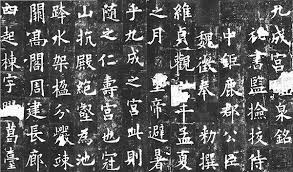 九成宮醴泉銘
秘書監檢校侍
中鉅鹿郡公臣
魏徵奉 勅撰
維貞觀年孟夏
之月 皇帝避暑
乎九成之宮此則
隨之仁壽宮也冠
山抗殿絕壑為池
跨水架楹分巖竦
闕高閣周建長廊
四起棟宇葛臺